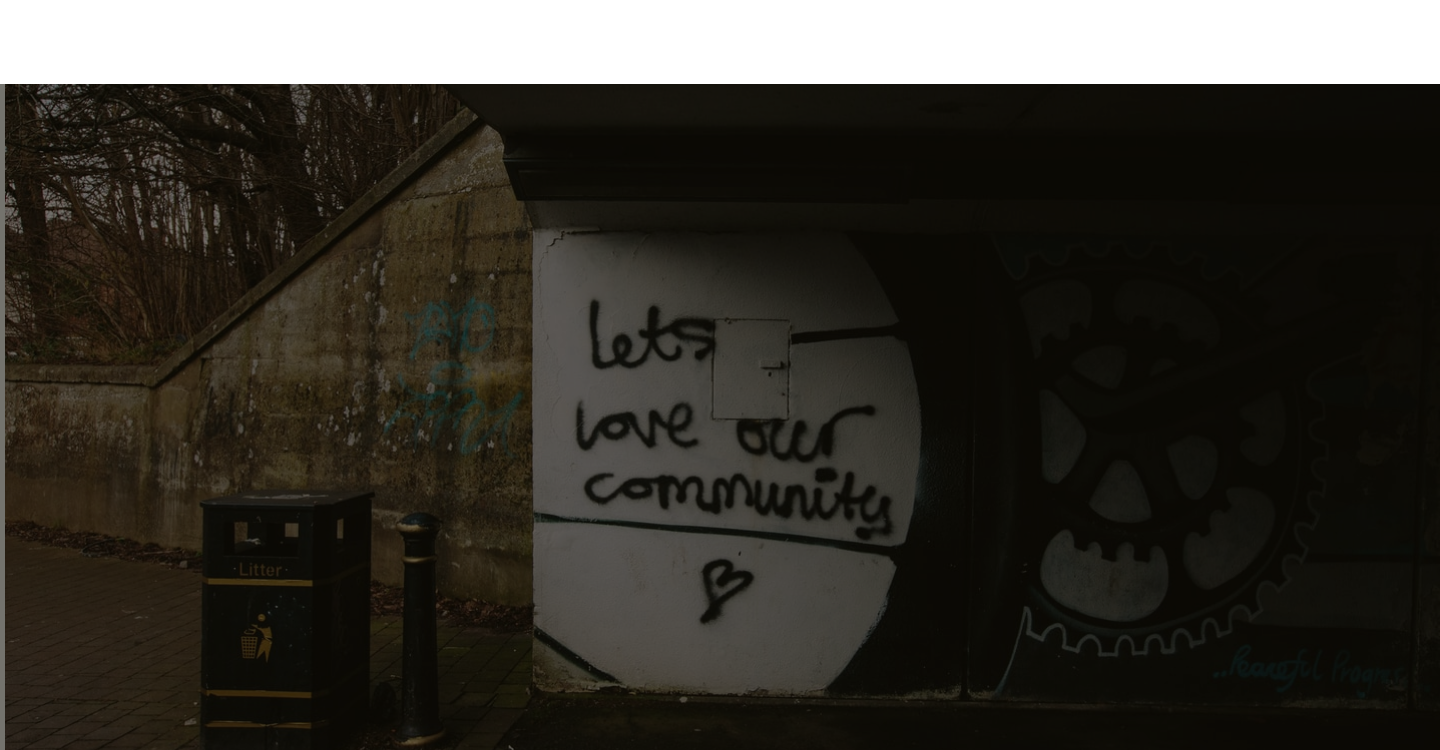 lets
love our
community
Litter
..Peaceful Progress